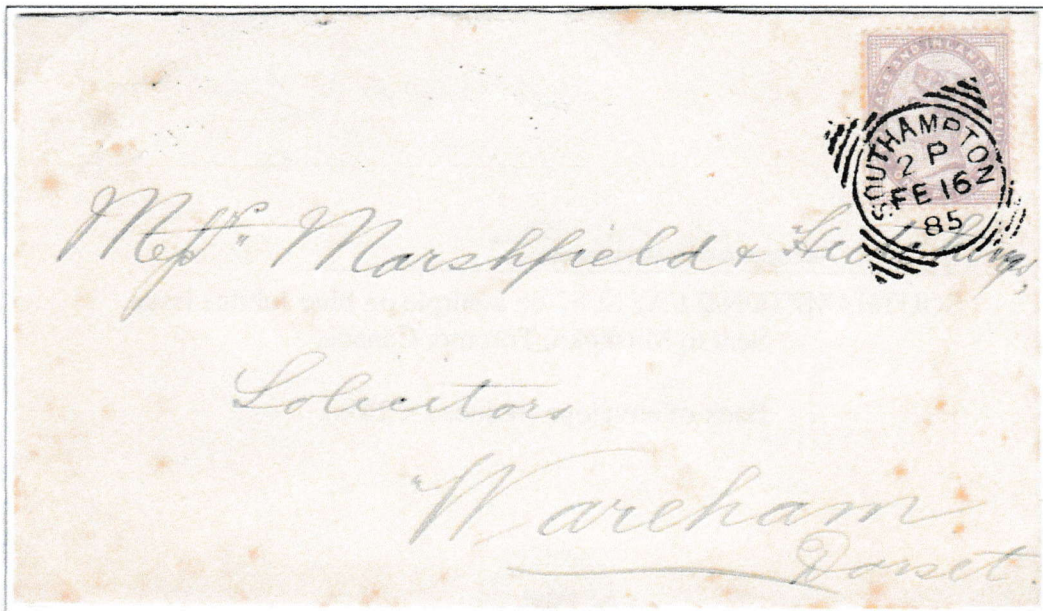 AGE AND INLAND REVEN
SOUTHAMPTON
2 P
FE 16
85
Messrs Marshfield & Hutchings,
Solicitors
Wareham
Dorset